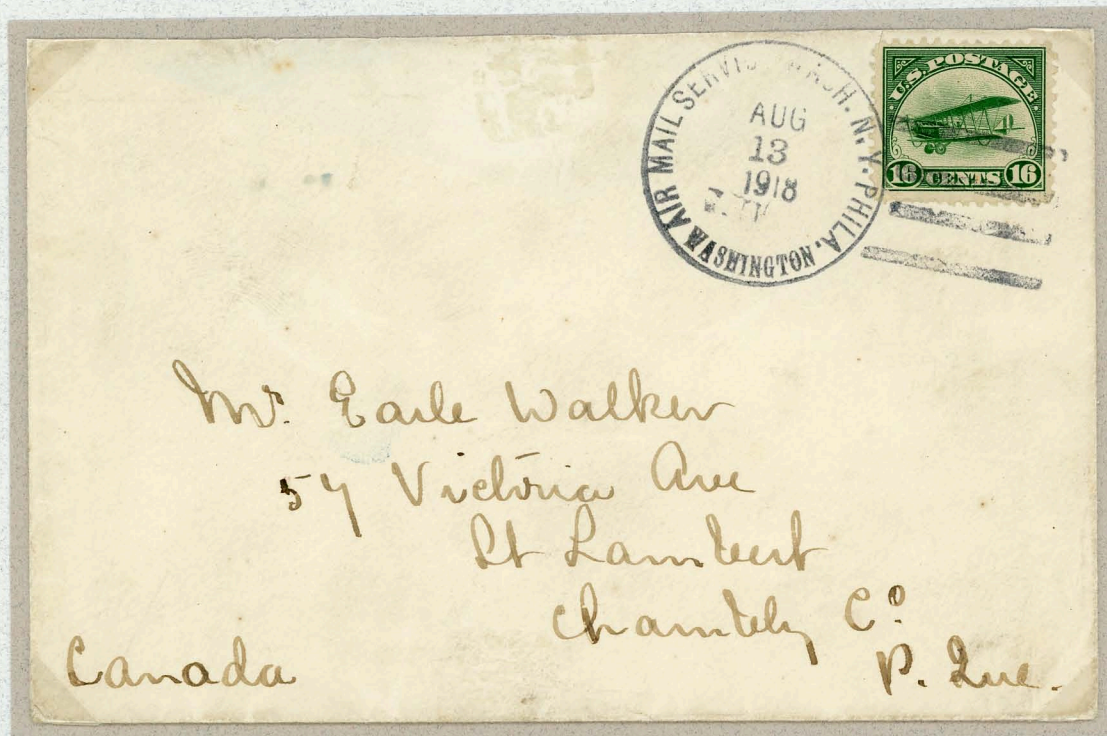 AIR MAIL SERVICE WASH. N.Y. PHILA.
AUG
13
1918
WASHINGTON
U.S. POSTAGE
16 CENTS 16
Mr. Earle Walker
57 Victoria Ave
St Lambert
Chambly Co.
P. Que.
Canada